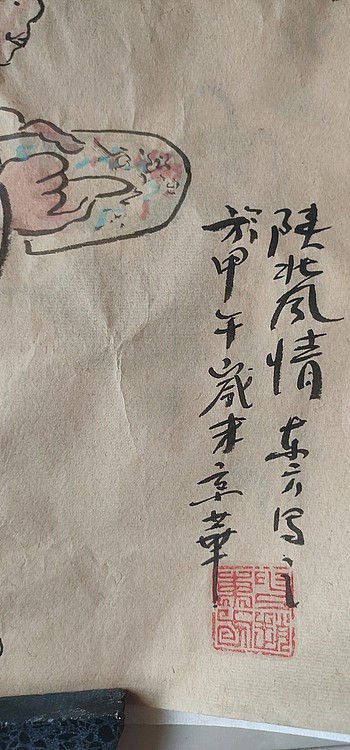 陕北风情 东方写之
於甲午岁末京华